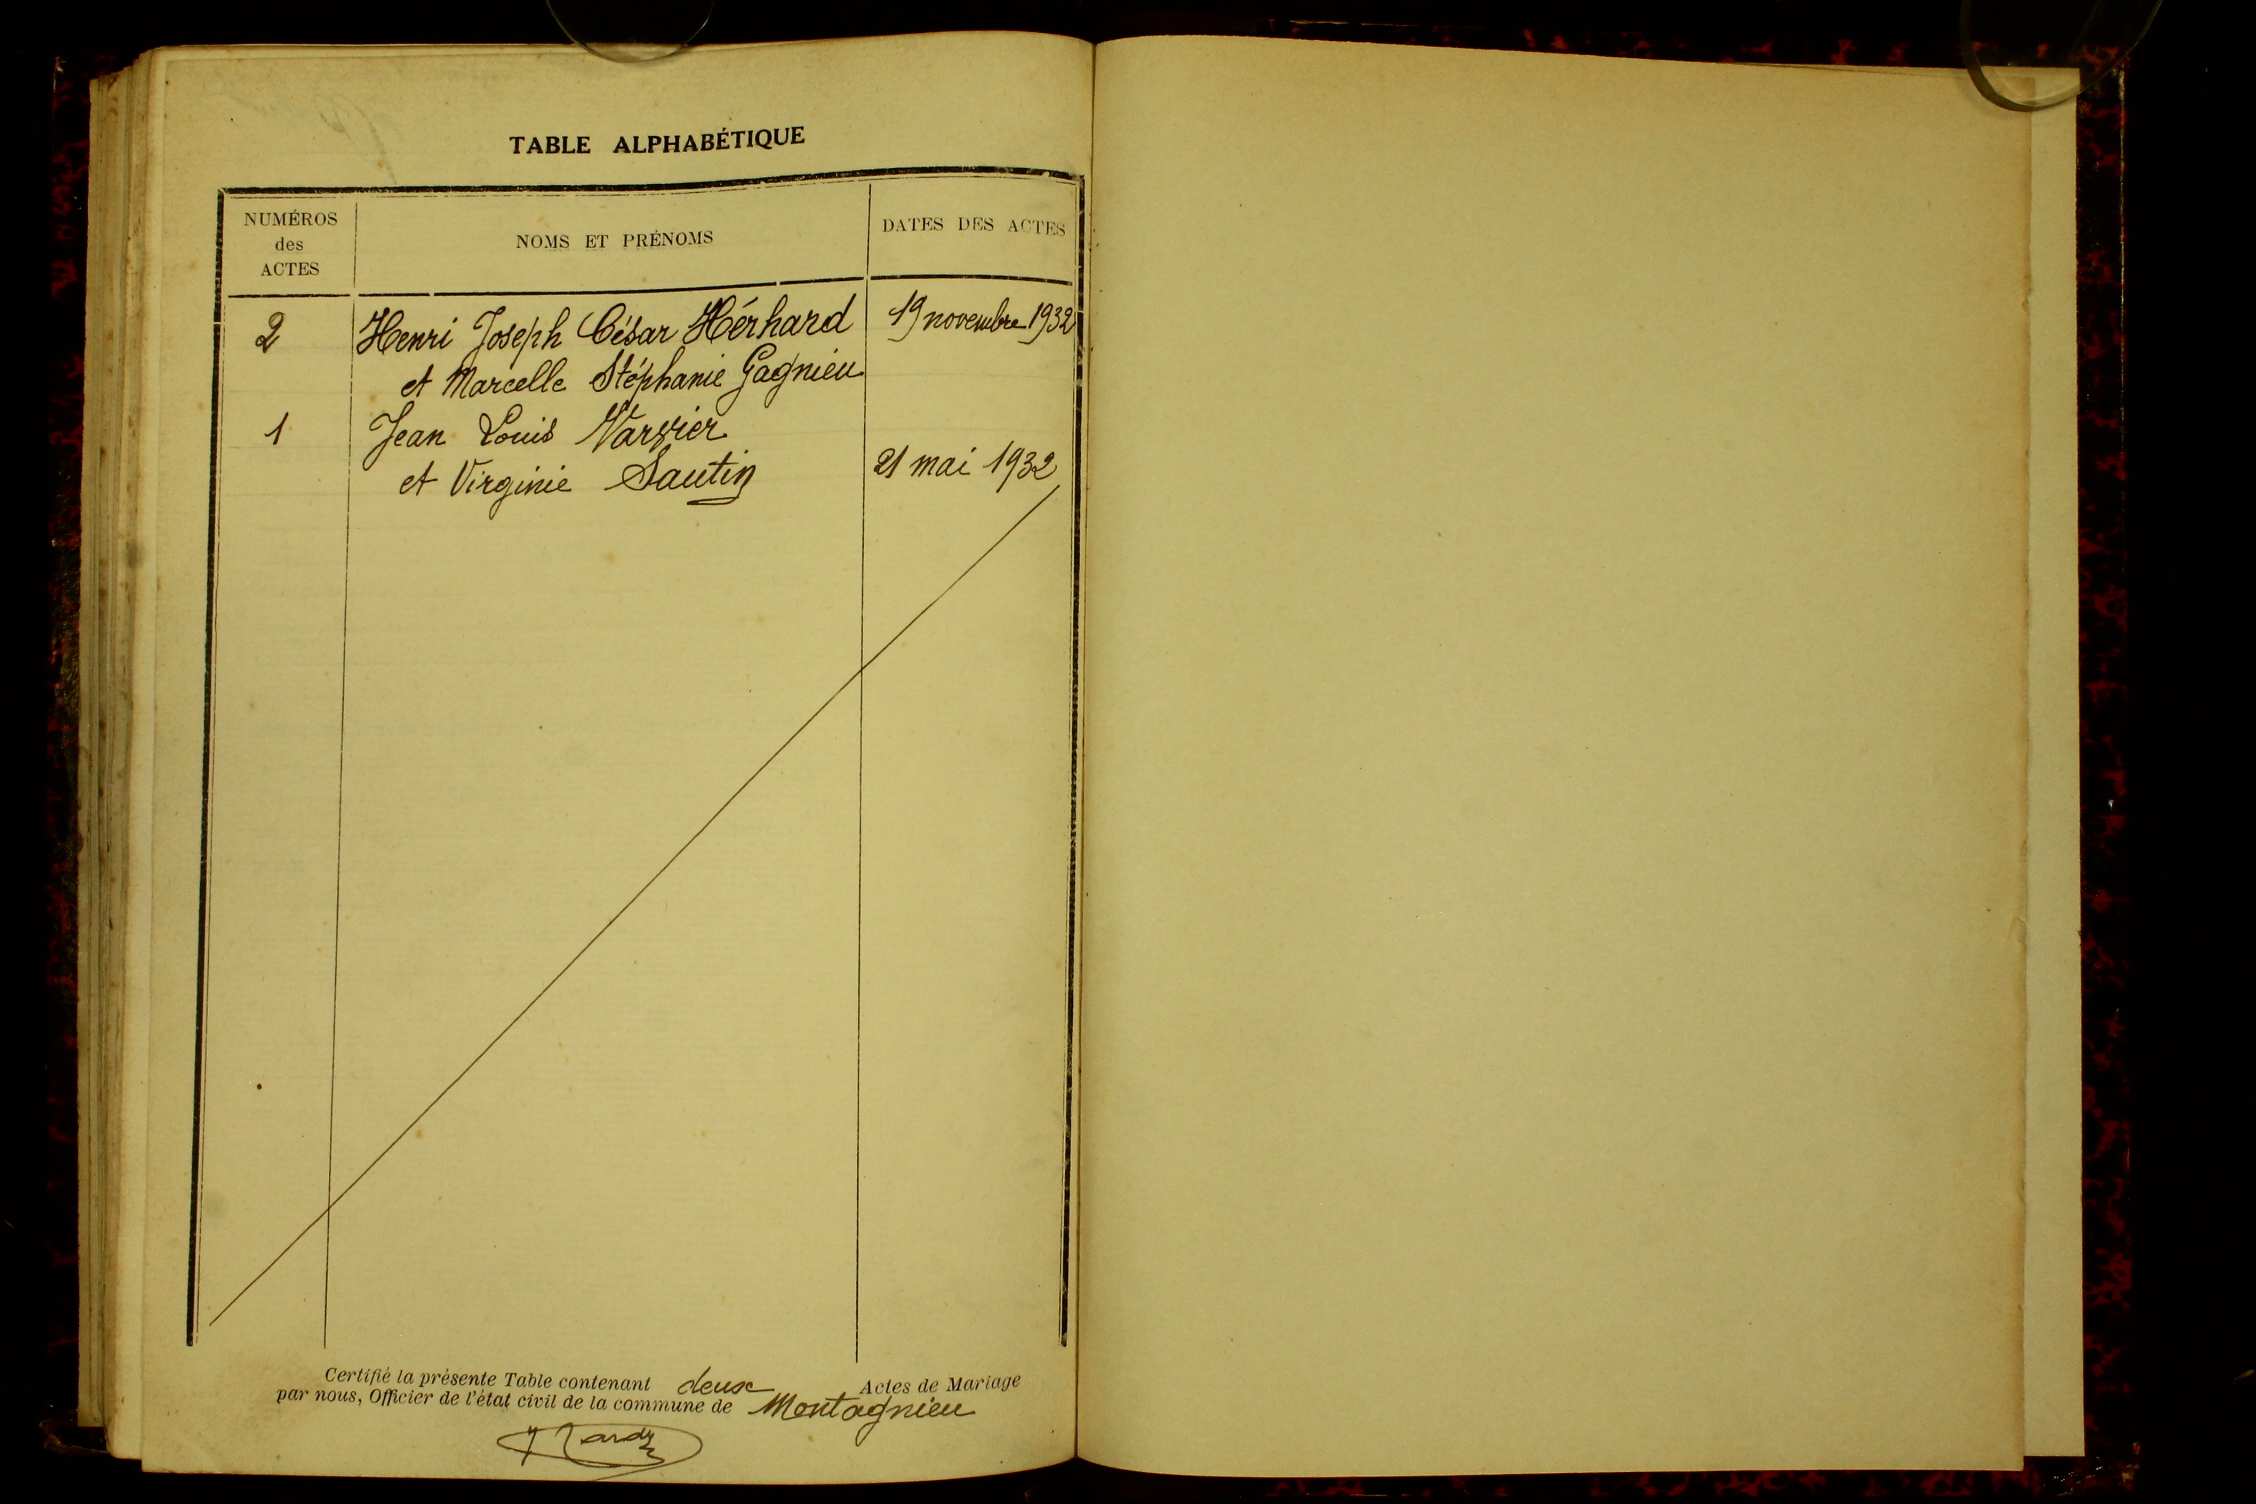 TABLE ALPHABÉTIQUE
NUMÉROS
des
ACTES
NOMS ET PRÉNOMS
DATES DES ACTES
2 Henri Joseph César Hérhard 19 novembre 1932
et Marcelle Stéphanie Gagnieu
1 Jean Louis Varvier
et Virginie Sautin 21 mai 1932
Certifié la présente Table contenant deux Actes de Mariage
par nous, Officier de l'état civil de la commune de Montagnieu